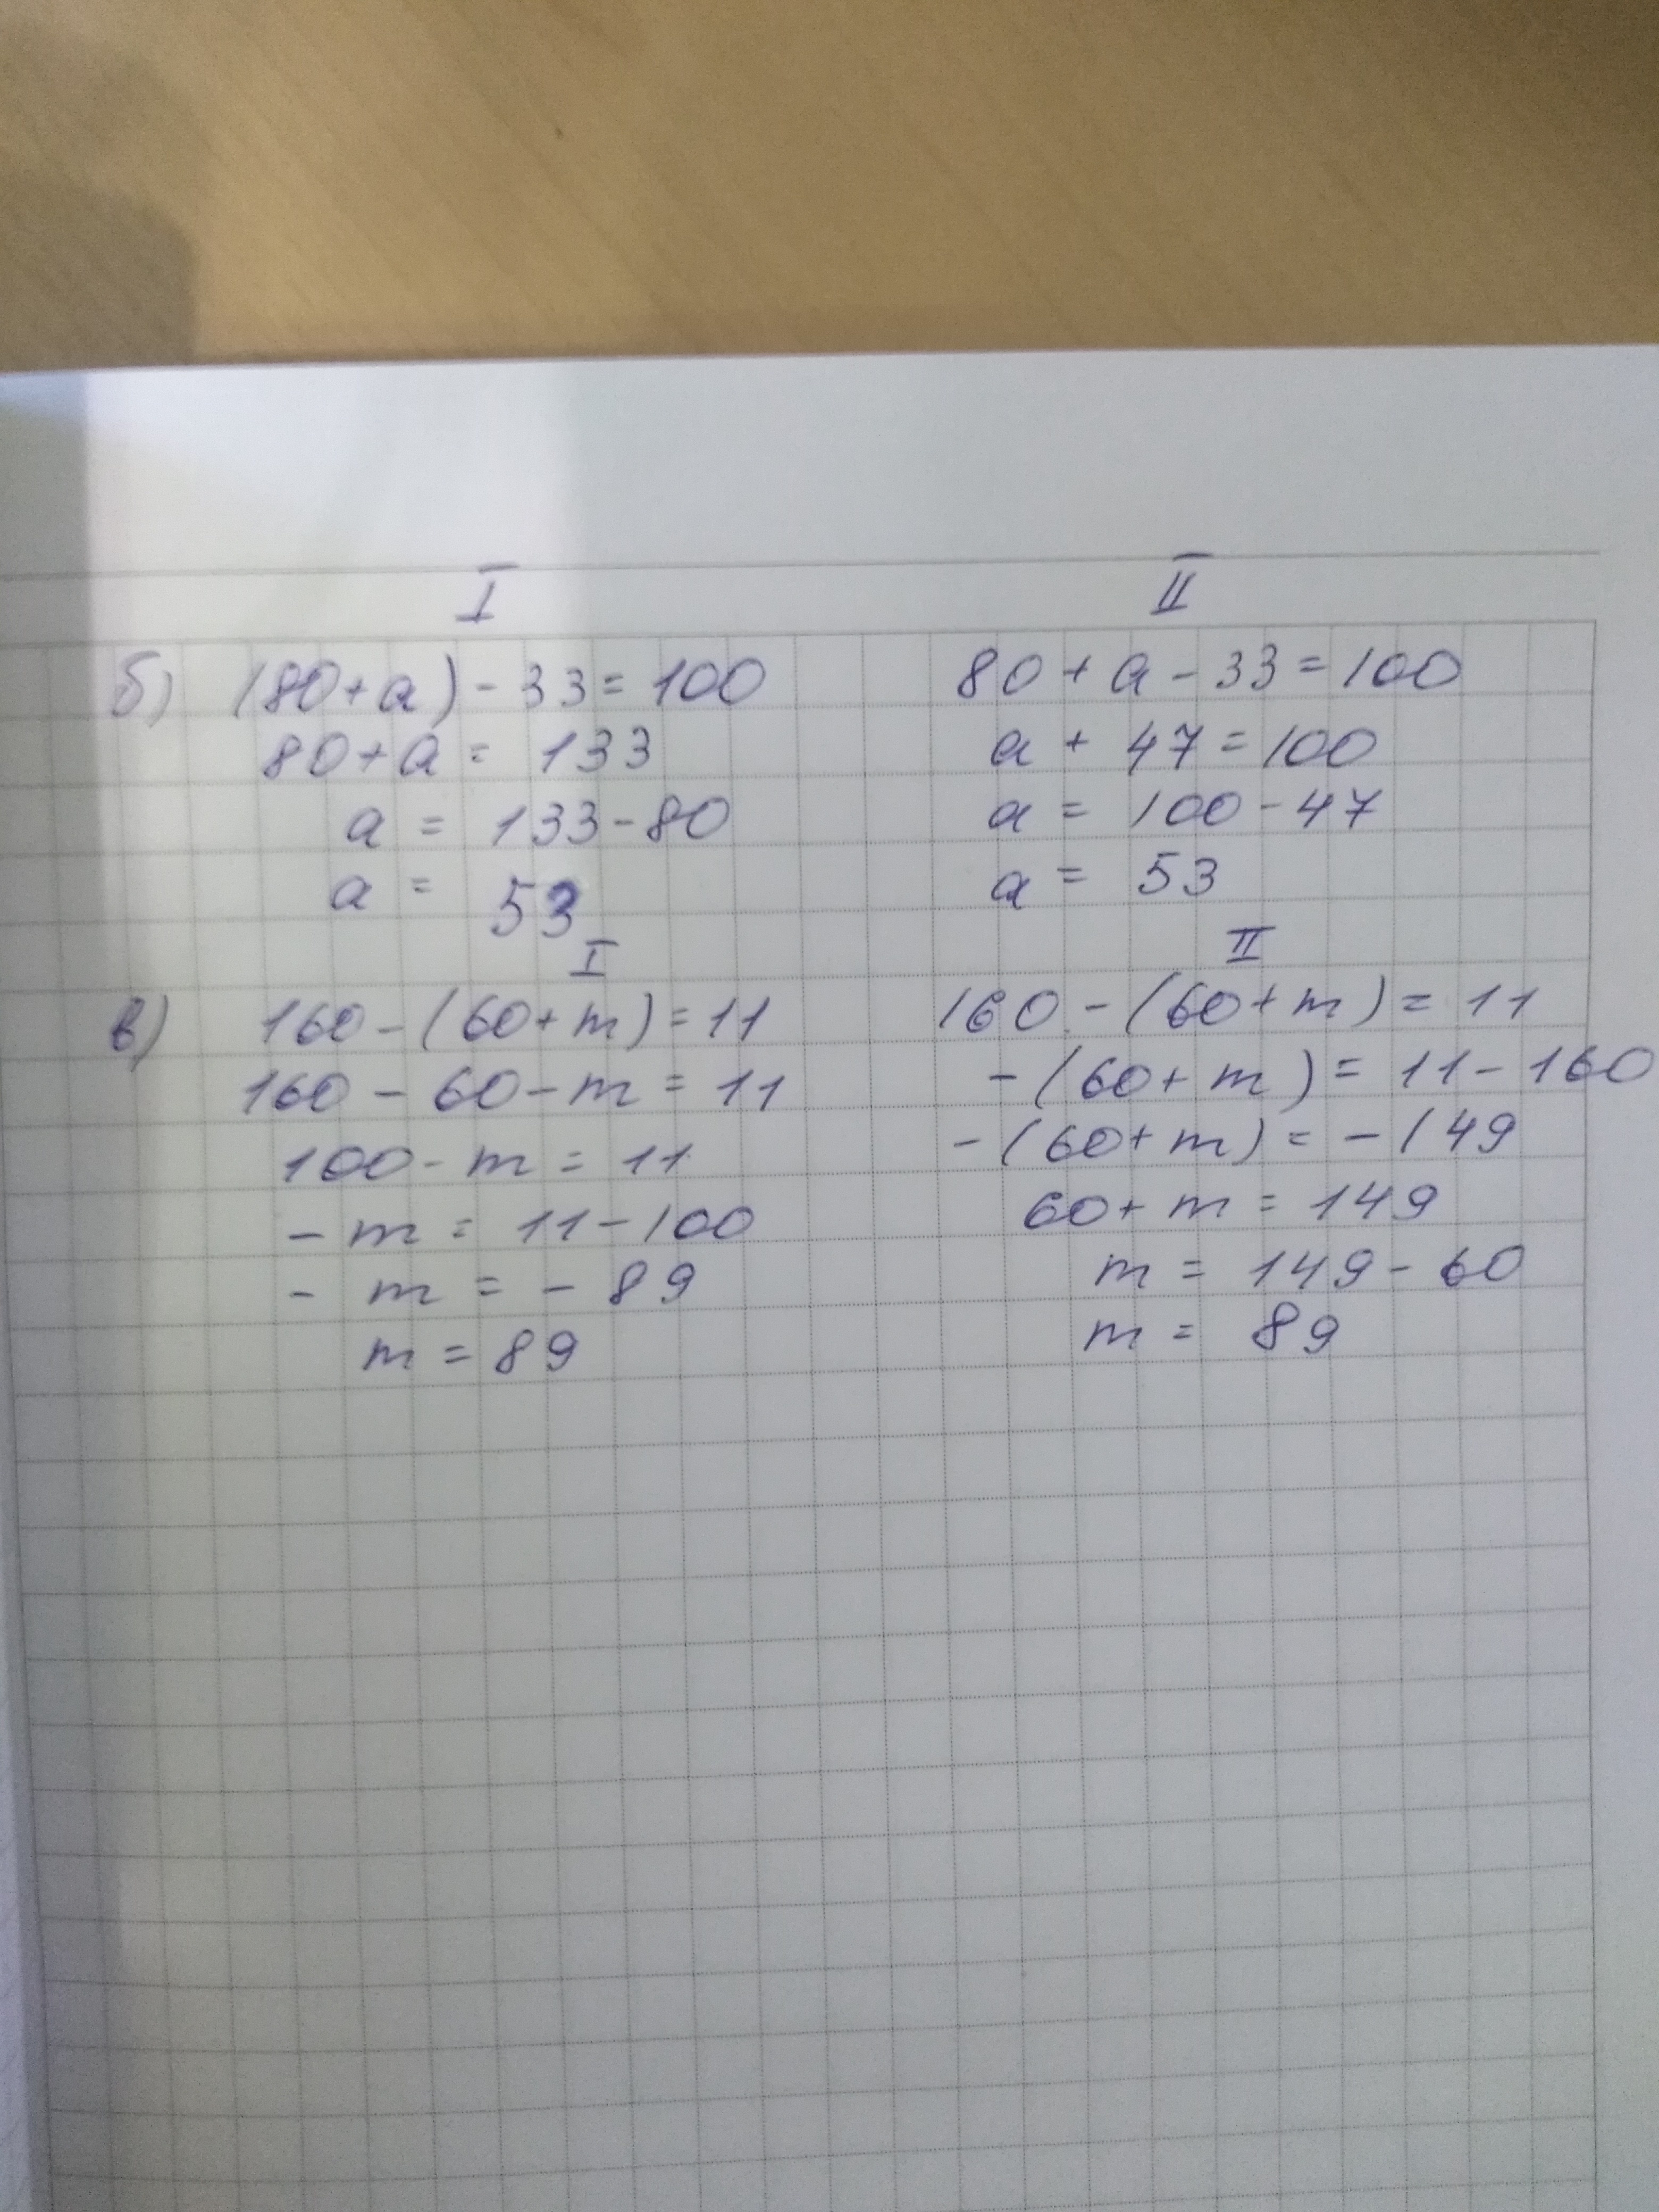 I
б) (80+a) - 33 = 100
80+a = 133
a = 133-80
a = 53
II
80 + a - 33 = 100
a + 47 = 100
a = 100 - 47
a = 53
I
в) 160 - (60+m) = 11
160 - 60 - m = 11
100 - m = 11
- m = 11 - 100
- m = - 89
m = 89
II
160 - (60+m) = 11
- (60+m) = 11 - 160
- (60+m) = - 149
60+m = 149
m = 149 - 60
m = 89